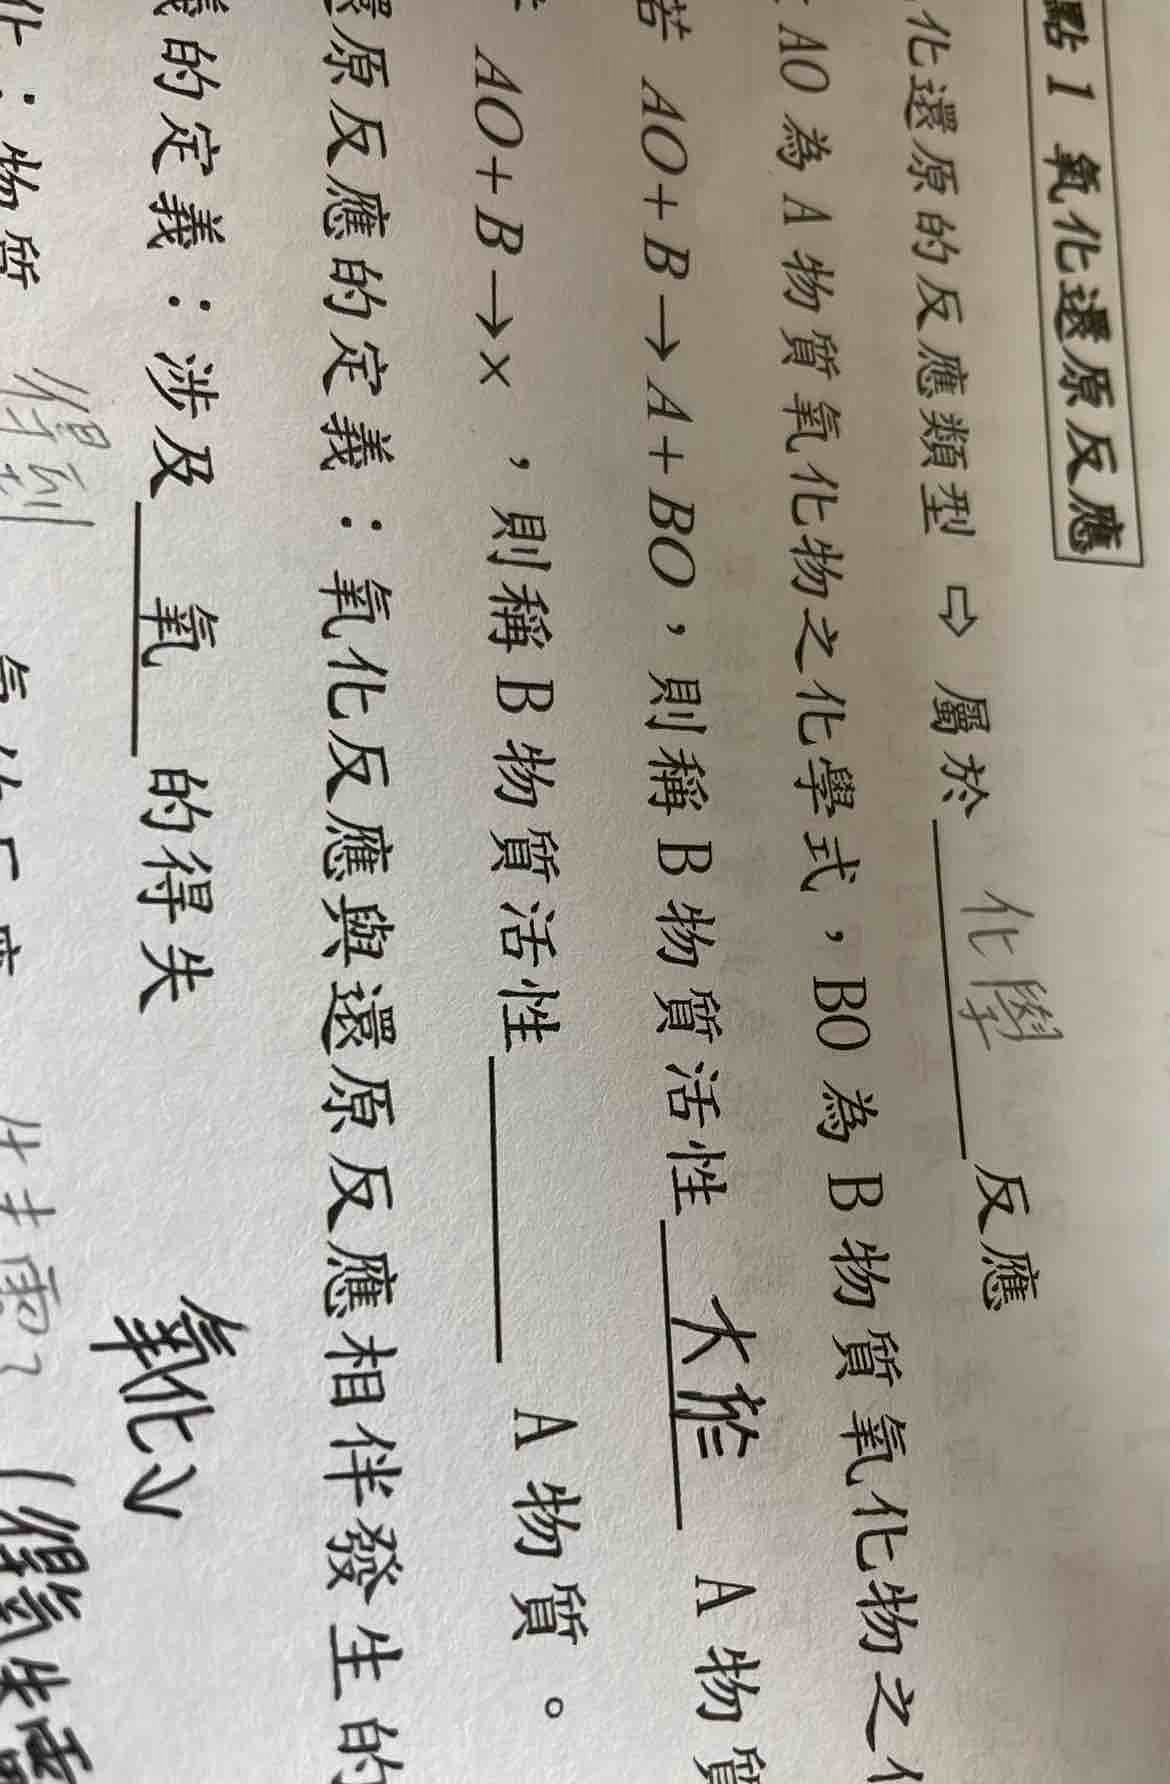 點 1 氧化還原反應
化還原的反應類型 ⇨ 屬於 化學 反應
AO 為 A 物質氧化物之化學式，BO 為 B 物質氧化物之
若 AO + B → A + BO，則稱 B 物質活性 大於 A 物質
AO + B → ×，則稱 B 物質活性 A 物質。
還原反應的定義：氧化反應與還原反應相伴發生的
義的定義：涉及 氧 的得失 氧化
化：物質 得到 得氧失電